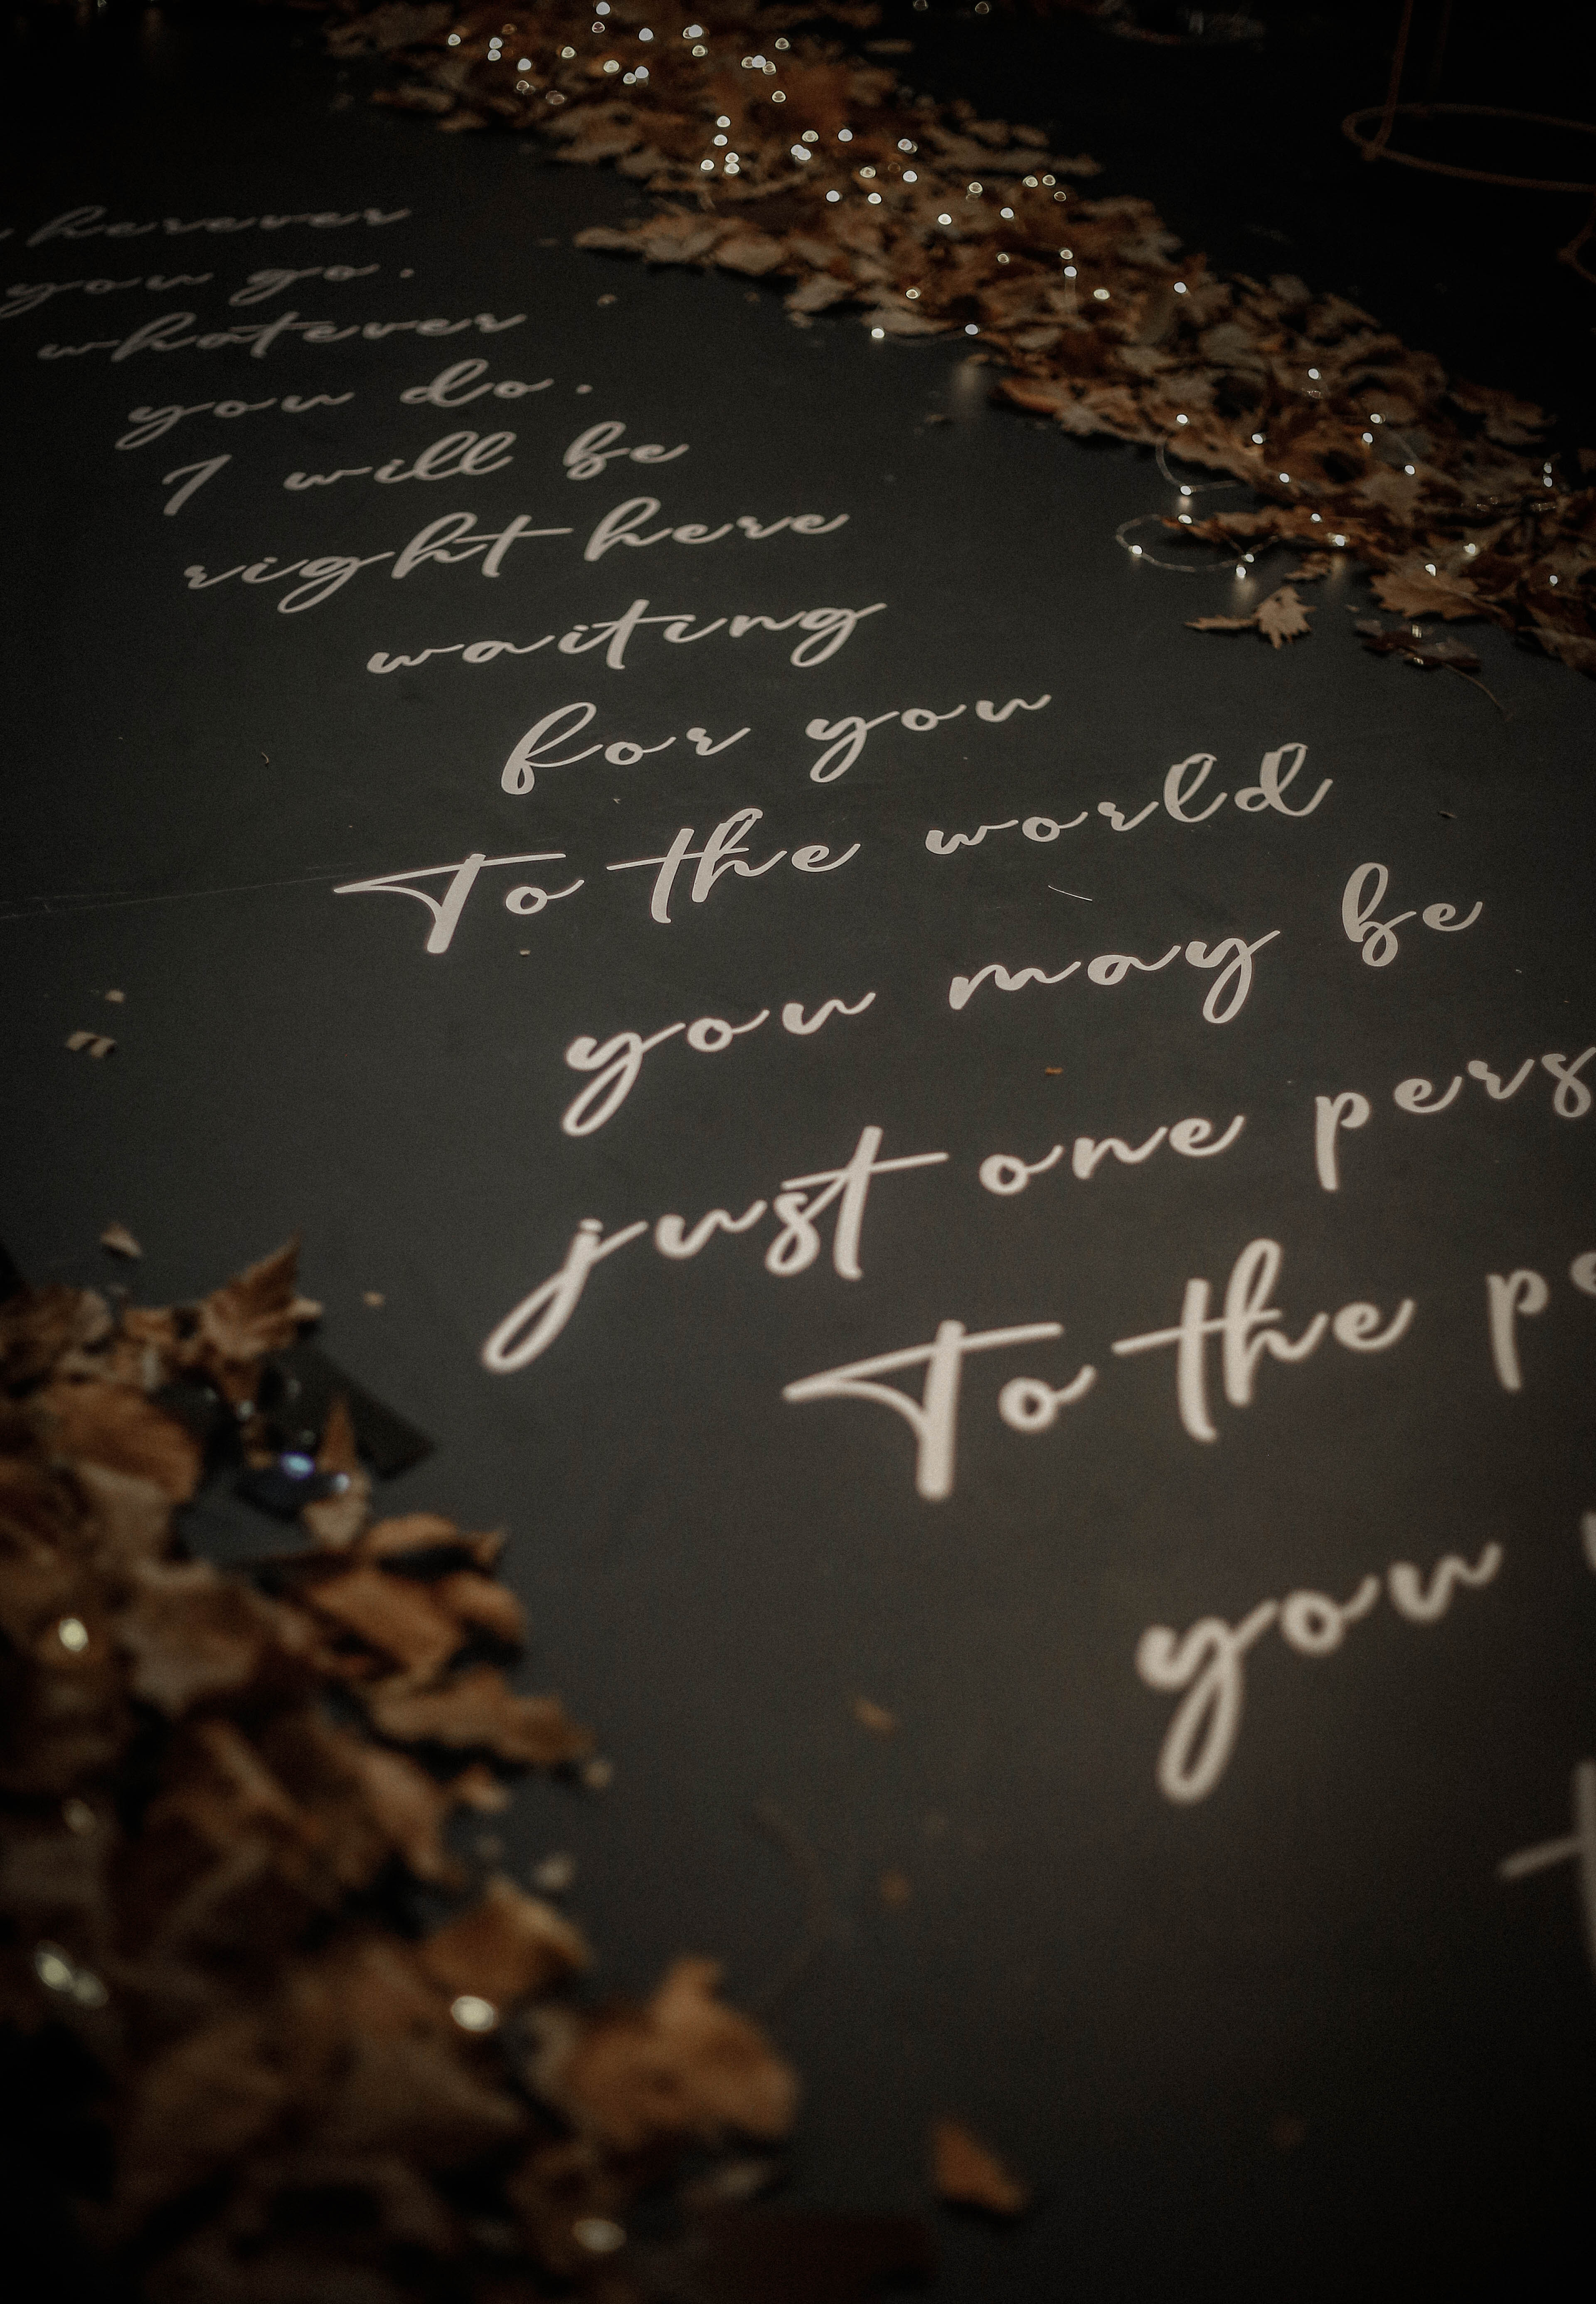 wherever
you go.
whatever
you do.
I will be
right here
waiting
for you
To the world
you may be
just one pers
To the pe
you